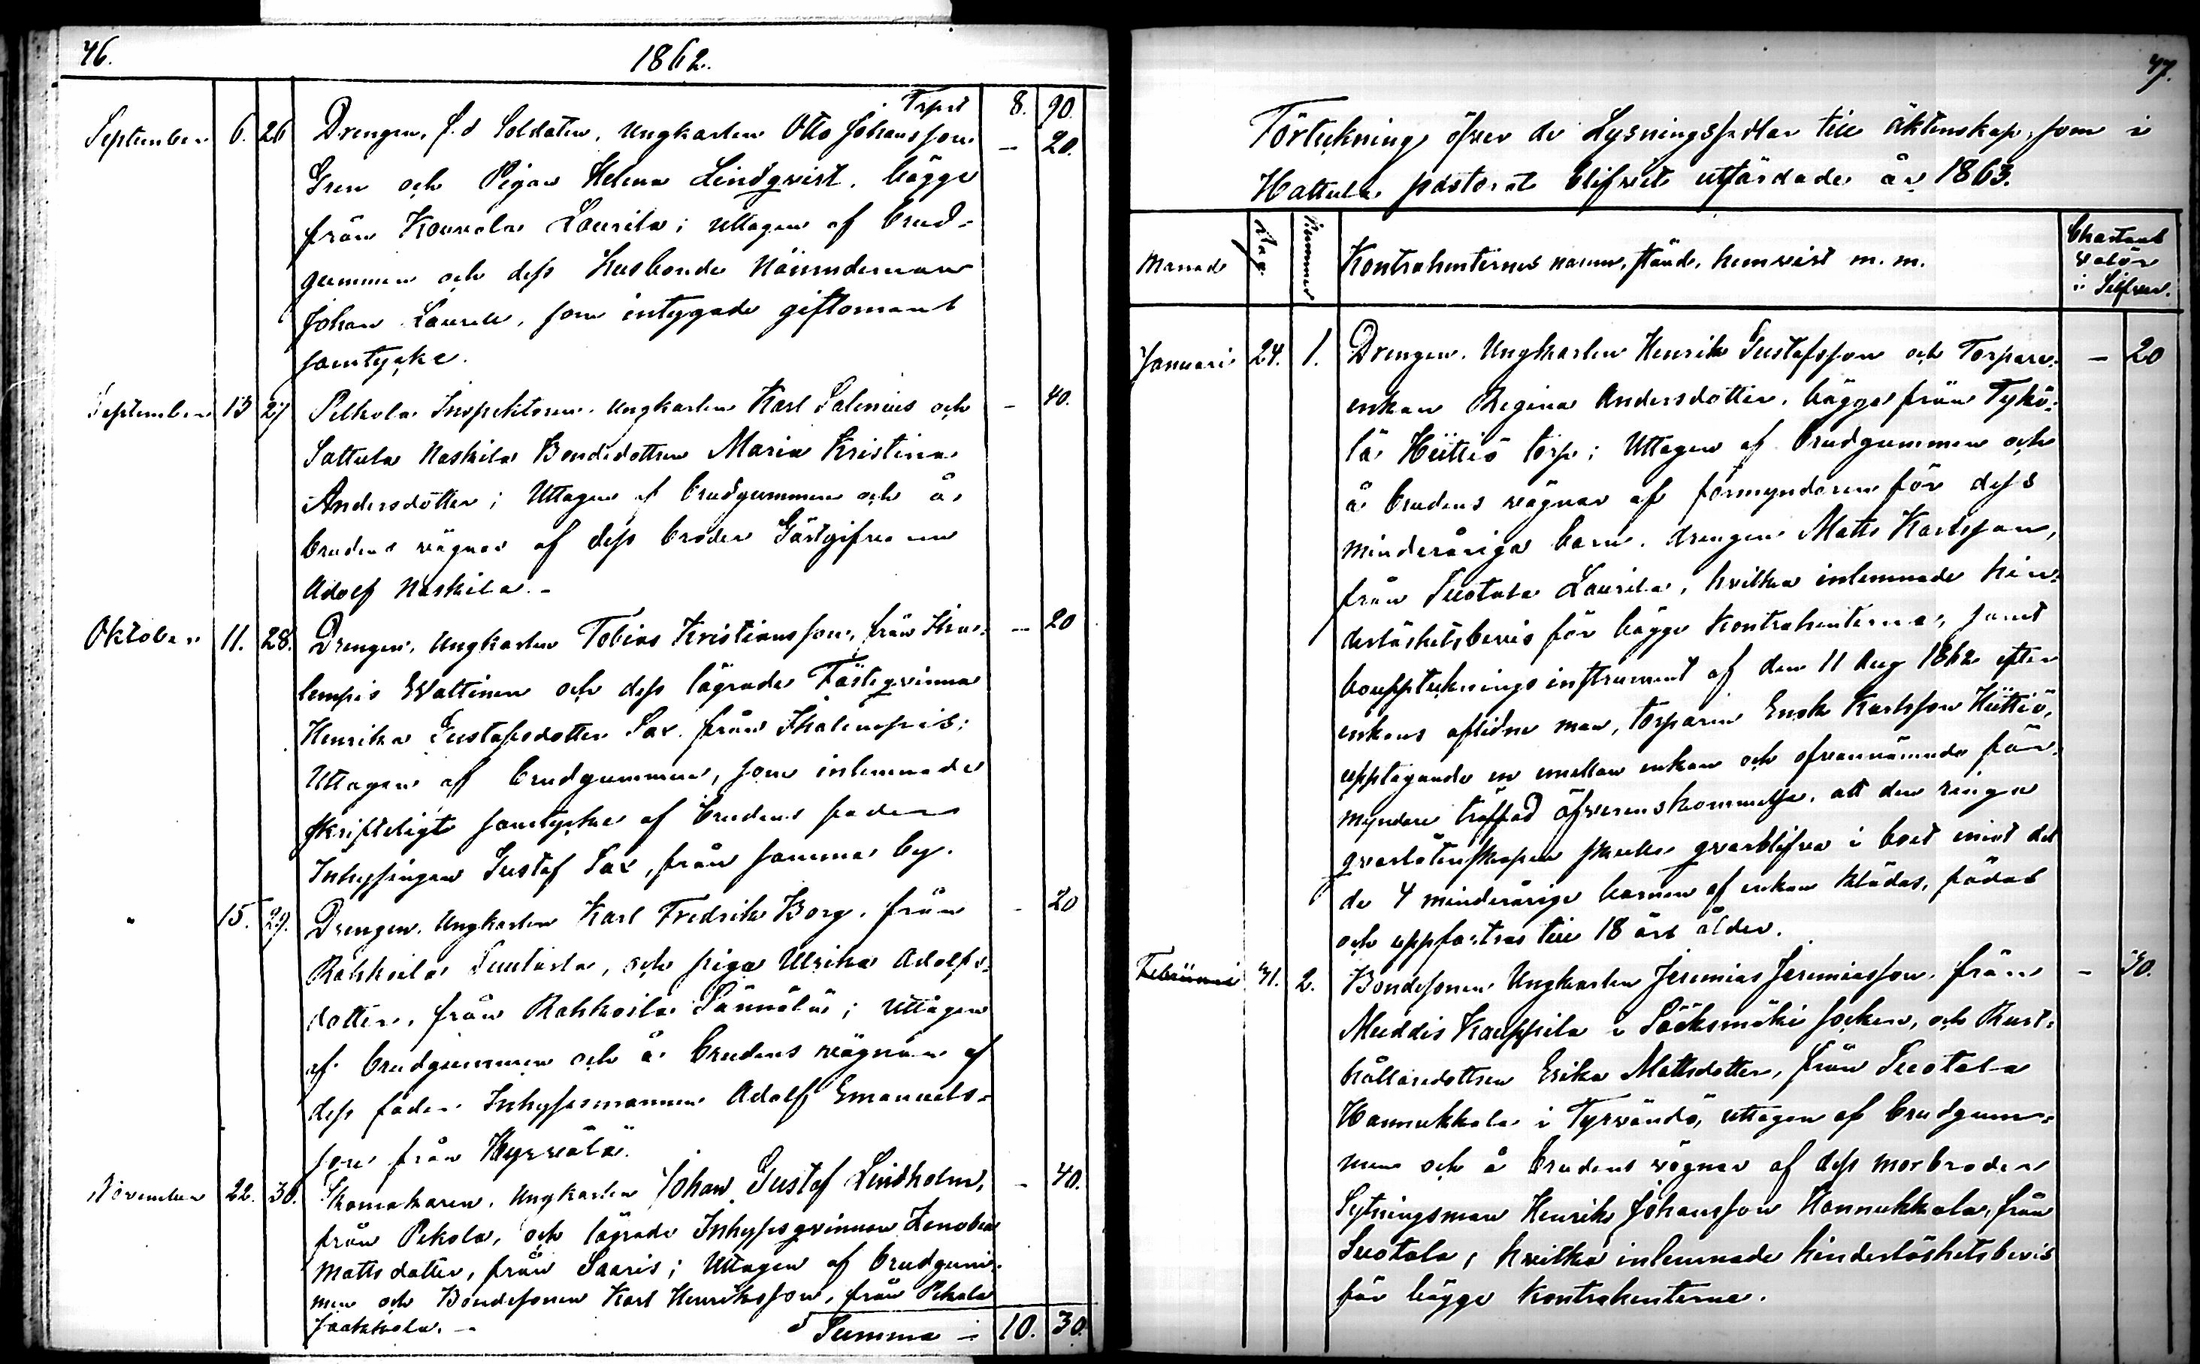 46.
1862.
Trpt 8. 90.
September 6. 26 Drengen, f.d Soldaten, Ungkarlen Otto Johansson — 20.
Gren och Pigan Helena Lindqvist, bägge
från Kouvala Laurila; uttagen af brud-
gummen och dess Husbonde Nämndeman
Johan Laurila, som intygade giftomans
samtycke.
September 13 27 Pelkola Inspektoren, Ungkarlen Karl Salenius och — 40.
Sattula Naskila Bondedottren Maria Kristina
Andersdotter; Uttagen af brudgummen och å
brudens vägnar af dess broder Gästgifvaren
Adolf Naskila. -
Oktober 11. 28. Drengen, Ungkarlen Tobias Kristiansson, från — 20
Wattinen och dess lägrade Fästeqvinna
Henrika Gustafsdotter Sax, från
Uttagen af brudgummen, som inlemnade
skrifteligt samtycke af brudens fader
Inhysingen Gustaf Sax, från samma by.
" 15. 29. Drengen, Ungkarlen Karl Fredrik Borg, från - 20
Rahkoila Uusitalo, och piga Ulrika Adolfs-
dotter, från Rahkoila; Uttagen
af brudgummen och å brudens vägnar af
dess fader Inhysesmannen Adolf Emanuels-
son från Hyrvälä.
November 22. 30. Skomakaren, Ungkarlen Johan Gustaf Lindholm, - 40.
från Pekola, och lägrade Inhysesqvinnan Zenobia
Mattsdotter, från Saaris; Uttagen af brudgum-
men och Bondesonen Karl Henriksson, från Pekola
Jaakkola. -
Summa - 10. 30.
47.
Förteckning öfver de Lysningssedlar till äktenskap, som i
Hattula pastorat blifvit utfärdade år 1863.
Månad Dag. Nummer Kontrahenternes namn, stånd, hemvist m.m. Chartæ valör i Silfver.
Januari 24. 1. Drengen, Ungkarlen Henrik Gustafsson och Torpare- — 20
enkan Regina Andersdotter, bägge från Tykö-
lä Hüttiö torp; Uttagen af brudgummen och
å brudens vägnar af förmyndaren för dess
minderåriga barn, drengen Matts Karlsson,
från Suotala Laurila, hvilka inlemnade hin-
derlöshetsbevis för bägge Kontrahenterna, samt
bouppteckningsinstrument af den 11 Aug 1862 efter
enkans aflidne man, torparen Enok Karlsson Hüttiö,
upptagande en emellan enkan och ofvannämnde för-
myndare träffad öfverenskommelse, att den ringa
qvarlåtenskapen skulle qvarblifva i boet emot det
de 4 minderåriga barnen af enkan klädas, födas
och uppfostras till 18 års ålder.
Februari 31. 2. Bondesonen Ungkarlen Jeremias Jeremiasson, från — 30.
Muddis Kauppila i Sääksmäki socken, och Rust-
hållaredottren Erika Mattsdotter, från Suotala
Hannukkala i Tyrvändö, uttagen af brudgum-
men och å brudens vägnar af dess morbroder
Sytningsman Henrik Johansson Hannukkala, från
Suotala, hvilka inlemnade hinderlöshetsbevis
för bägge Kontrahenterna.